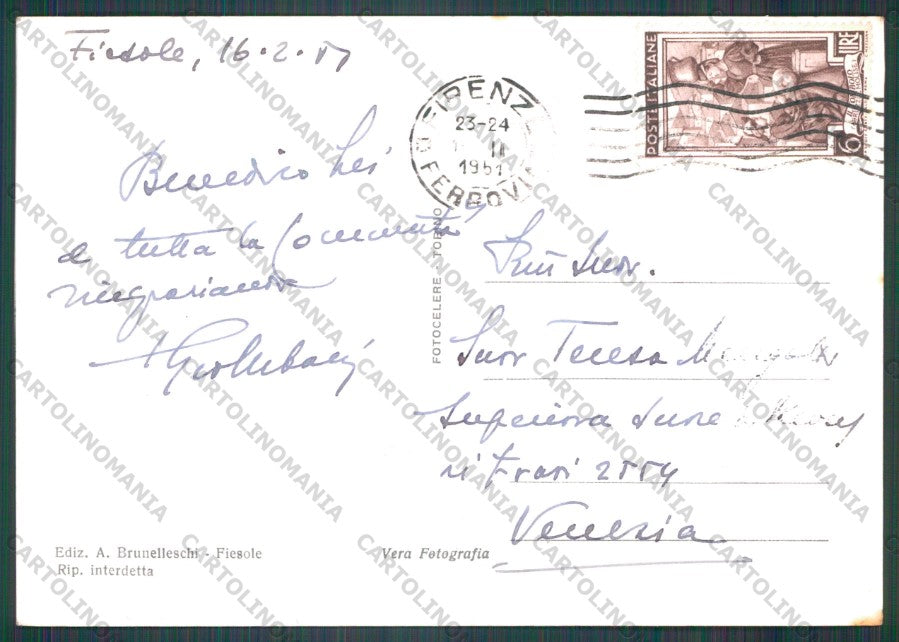 Fiesole, 16.2.51
FIRENZE
23-24
II
1951
FERROVIA
POSTE ITALIANE
LIRE 6
Benedico Lei
e tutta la Comunità
ringraziando
FOTOCELERE TORINO
Rev. Suor.
Suor Teresa
Superiora Suore
ai Frari 2554
Venezia
Ediz. A. Brunelleschi - Fiesole
Rip. interdetta
Vera Fotografia
CARTOLINOMANIA